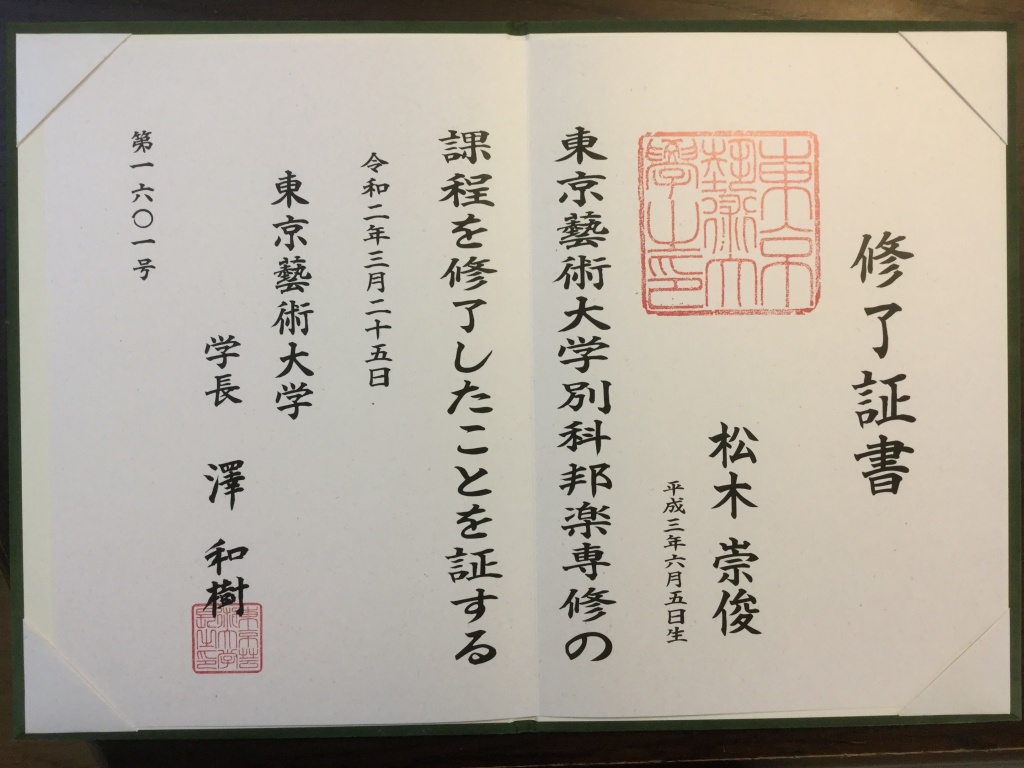 修了証書
東京藝術大学之印
松木 崇俊
平成三年六月五日生
東京藝術大学別科邦楽専修の
課程を修了したことを証する
令和二年三月二十五日
東京藝術大学
学長 澤 和樹
第一六〇一号